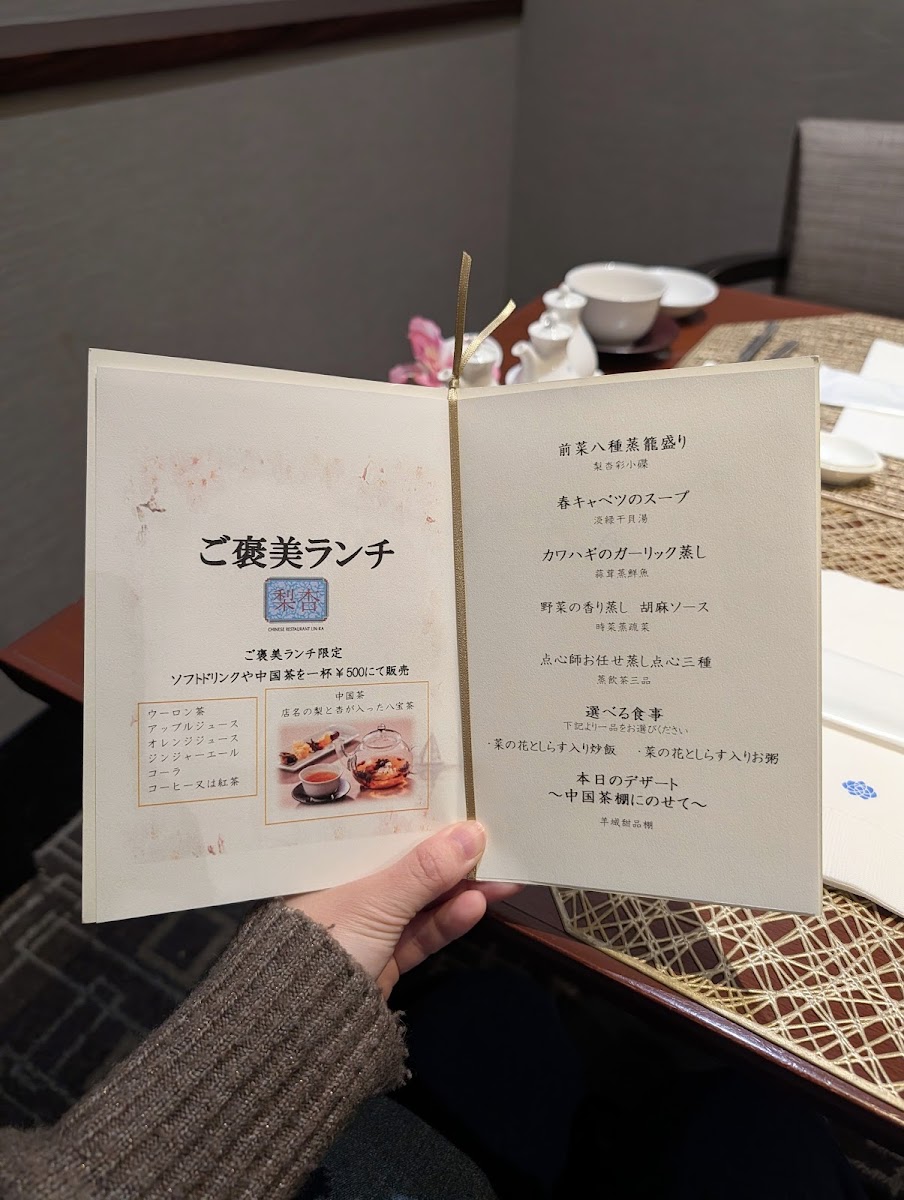 ご褒美ランチ
梨杏
CHINESE RESTAURANT LIN-KA
ご褒美ランチ限定
ソフトドリンクや中国茶を一杯￥500にて販売
ウーロン茶
アップルジュース
オレンジジュース
ジンジャーエール
コーラ
コーヒー又は紅茶
中国茶
店名の梨と杏が入った八宝茶
前菜八種蒸籠盛り
梨杏彩小碟
春キャベツのスープ
淡緑干貝湯
カワハギのガーリック蒸し
蒜茸蒸鮮魚
野菜の香り蒸し 胡麻ソース
時菜蒸疏菜
点心師お任せ蒸し点心三種
蒸飲茶三品
選べる食事
下記より一品をお選びください
・菜の花としらす入り炒飯 ・菜の花としらす入りお粥
本日のデザート
～中国茶棚にのせて～
羊城甜品棚